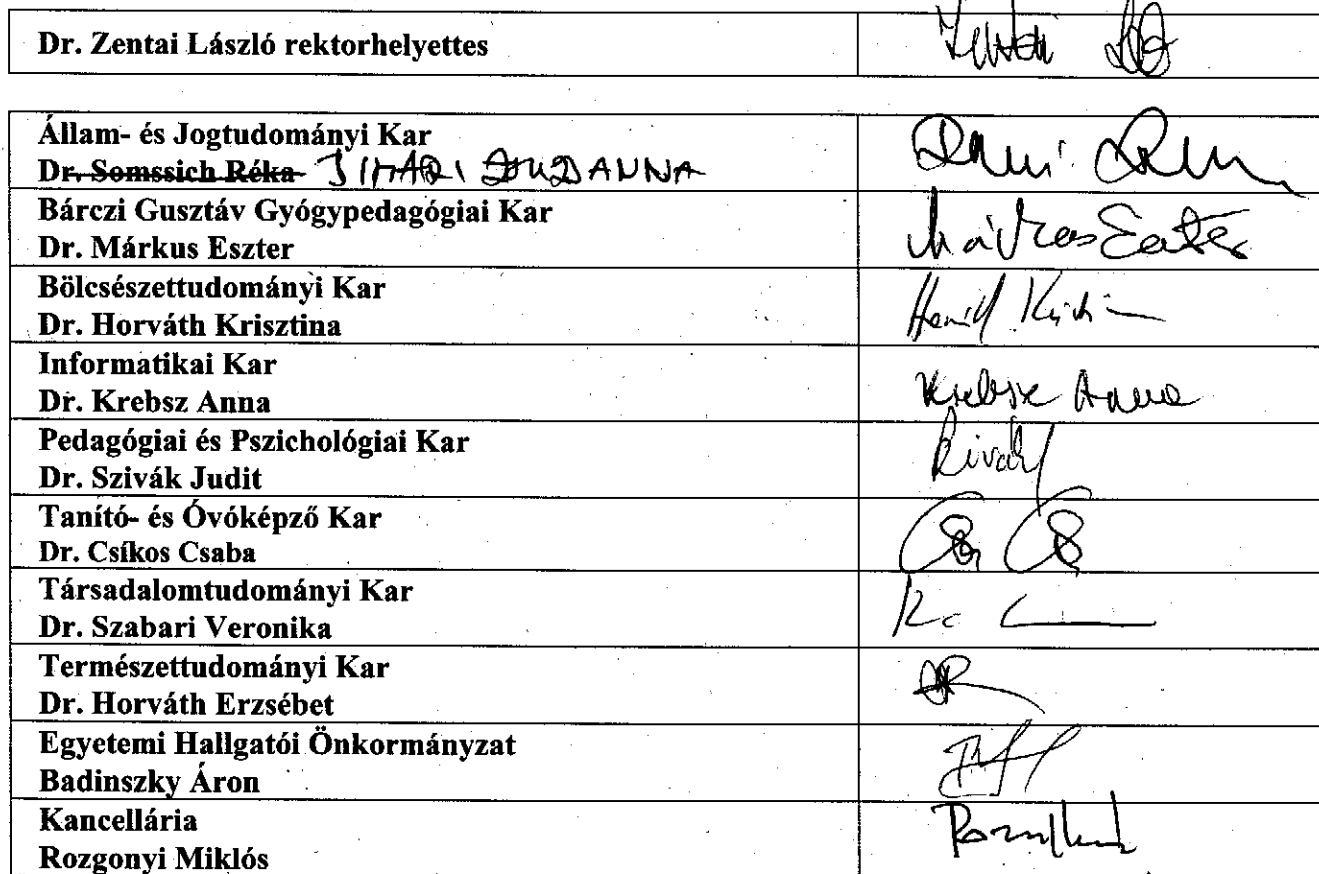 Dr. Zentai László rektorhelyettes
Állam- és Jogtudományi Kar
Dr. Somssich Réka
Bárczi Gusztáv Gyógypedagógiai Kar
Dr. Márkus Eszter
Bölcsészettudományi Kar
Dr. Horváth Krisztina
Informatikai Kar
Dr. Krebsz Anna
Krebsz Anna
Pedagógiai és Pszichológiai Kar
Dr. Szivák Judit
Tanító- és Óvóképző Kar
Dr. Csíkos Csaba
Társadalomtudományi Kar
Dr. Szabari Veronika
Természettudományi Kar
Dr. Horváth Erzsébet
Egyetemi Hallgatói Önkormányzat
Badinszky Áron
Kancellária
Rozgonyi Miklós